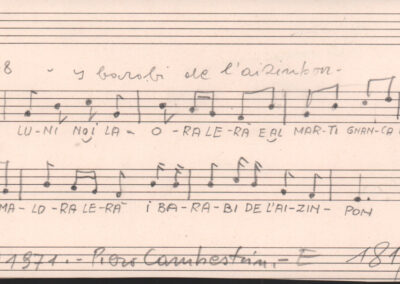 8 - y barabi de l'aizimpon -
LU-NI NOI LA- O-RA LE-RÀ E AL MAR-TI GNAN-CA
MA-LO-RA LE-RÀ I BA-RA-BI DE L'AI-ZIN- PON
1971. - Piero Cambestrini. - E 181